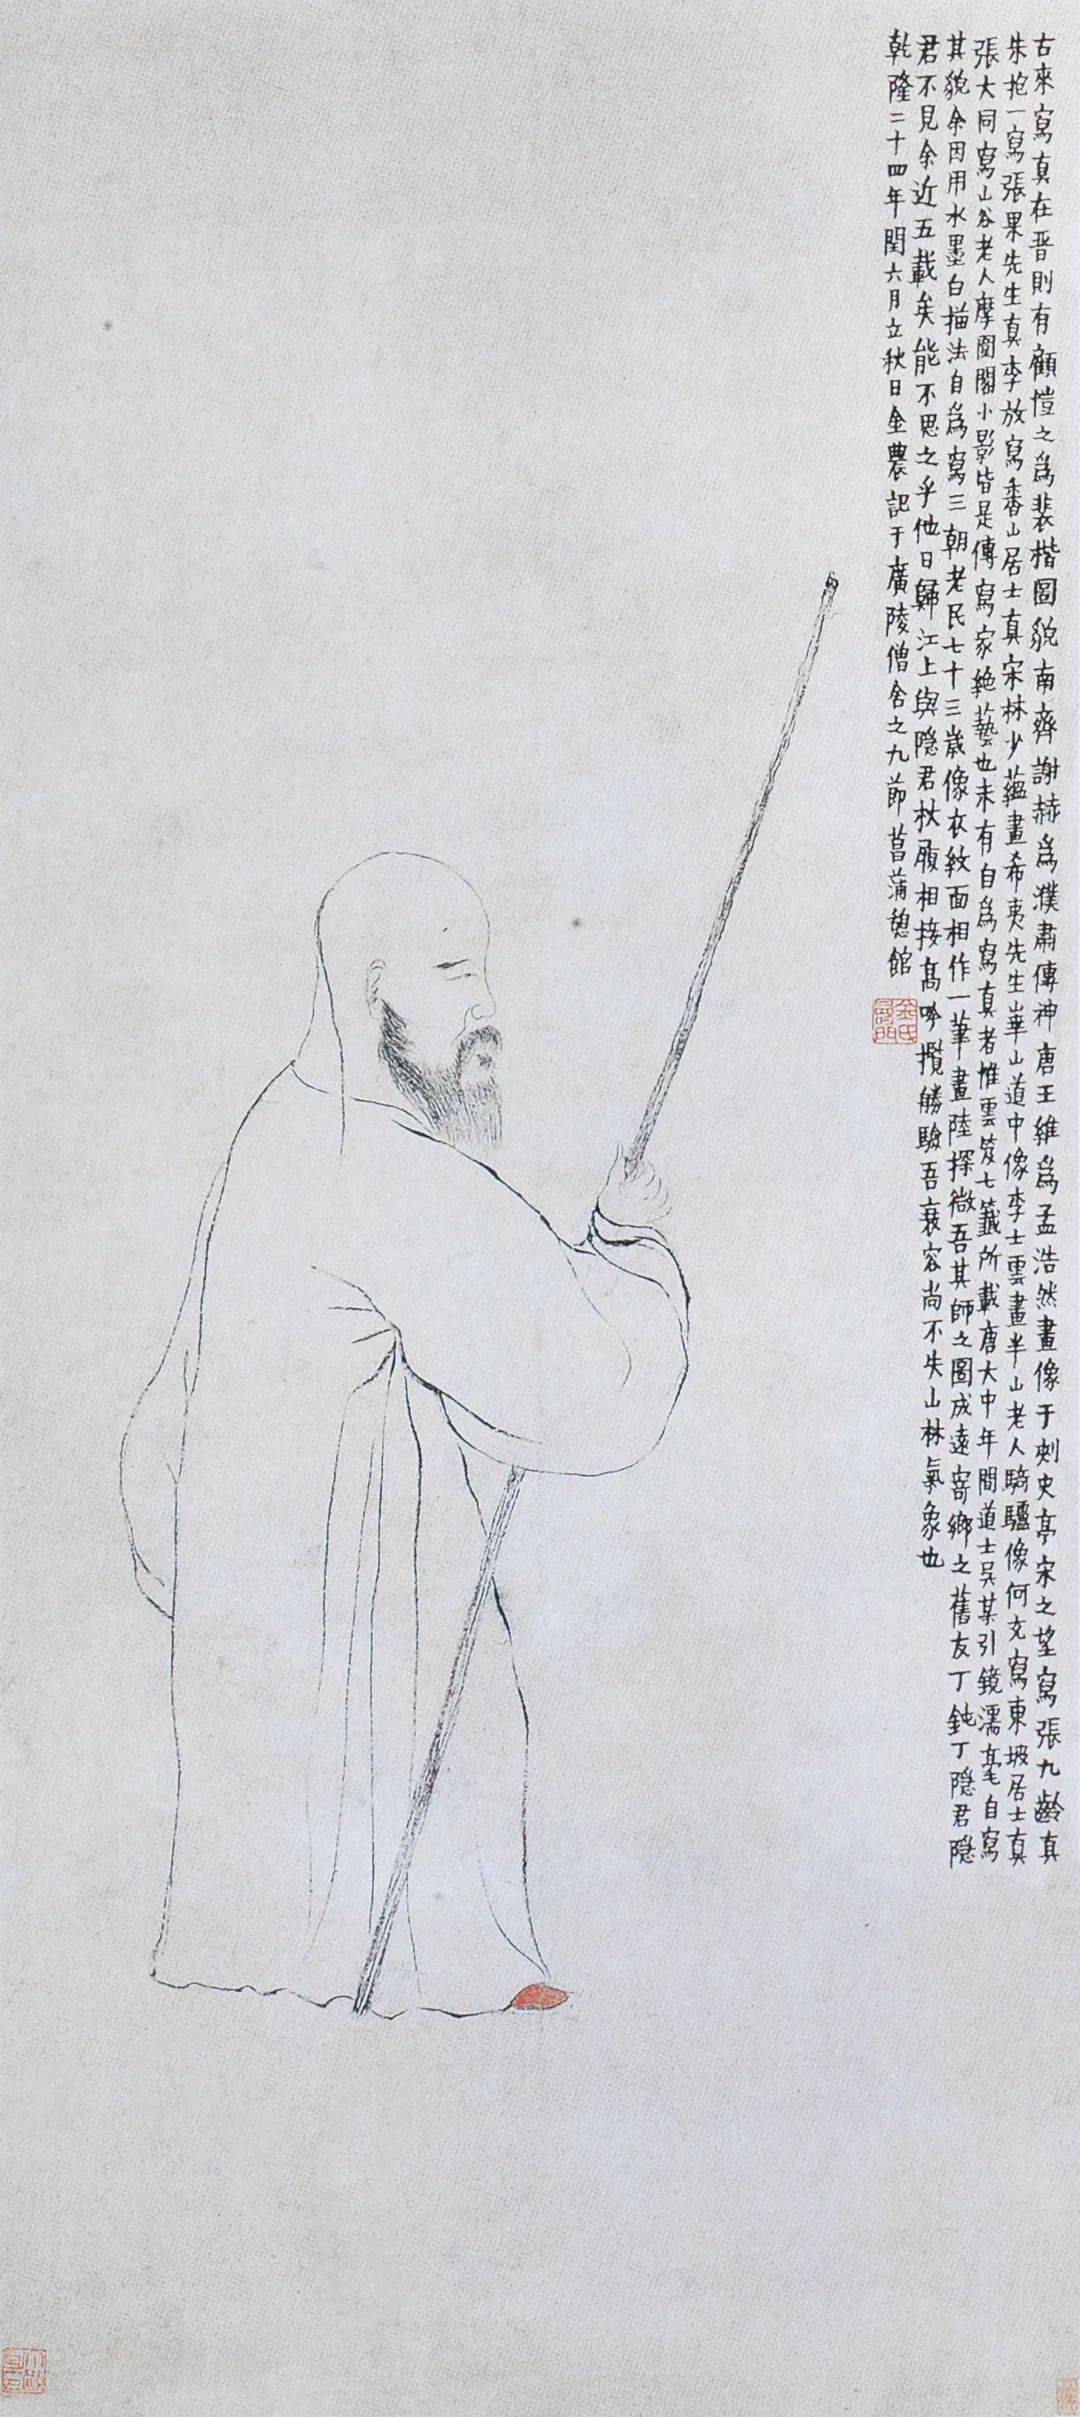 古來寫真在晋則有顧愷之爲裴楷圖貌南齊謝赫爲濮肅傳神唐王維爲孟浩然畫像于刺史亭宋之望寫張九齡真
朱抱一寫張果先生真李放寫香山居士真宋林少蘊畫希夷先生華山道中像李士雲畫半山老人騎驢像何充寫東坡居士真
張大同寫山谷老人摩圍閣小影皆是傳寫家絶藝也未有自爲寫真者惟雲笈七籤所載唐大中年間道士吴某引鏡濡毫自寫
其貌余因用水墨白描法自爲寫三朝老民七十三歲像衣紋面相作一筆畫陸探微吾其師之圖成遠寄鄉之舊友丁鈍丁隱君隱
君不見余近五載矣能不思之乎他日歸江上與隱君杖履相接高吟攬勝驗吾衰容尚不失山林氣象也
乾隆二十四年閏六月立秋日金農記于廣陵僧舍之九節菖蒲憩館
金氏